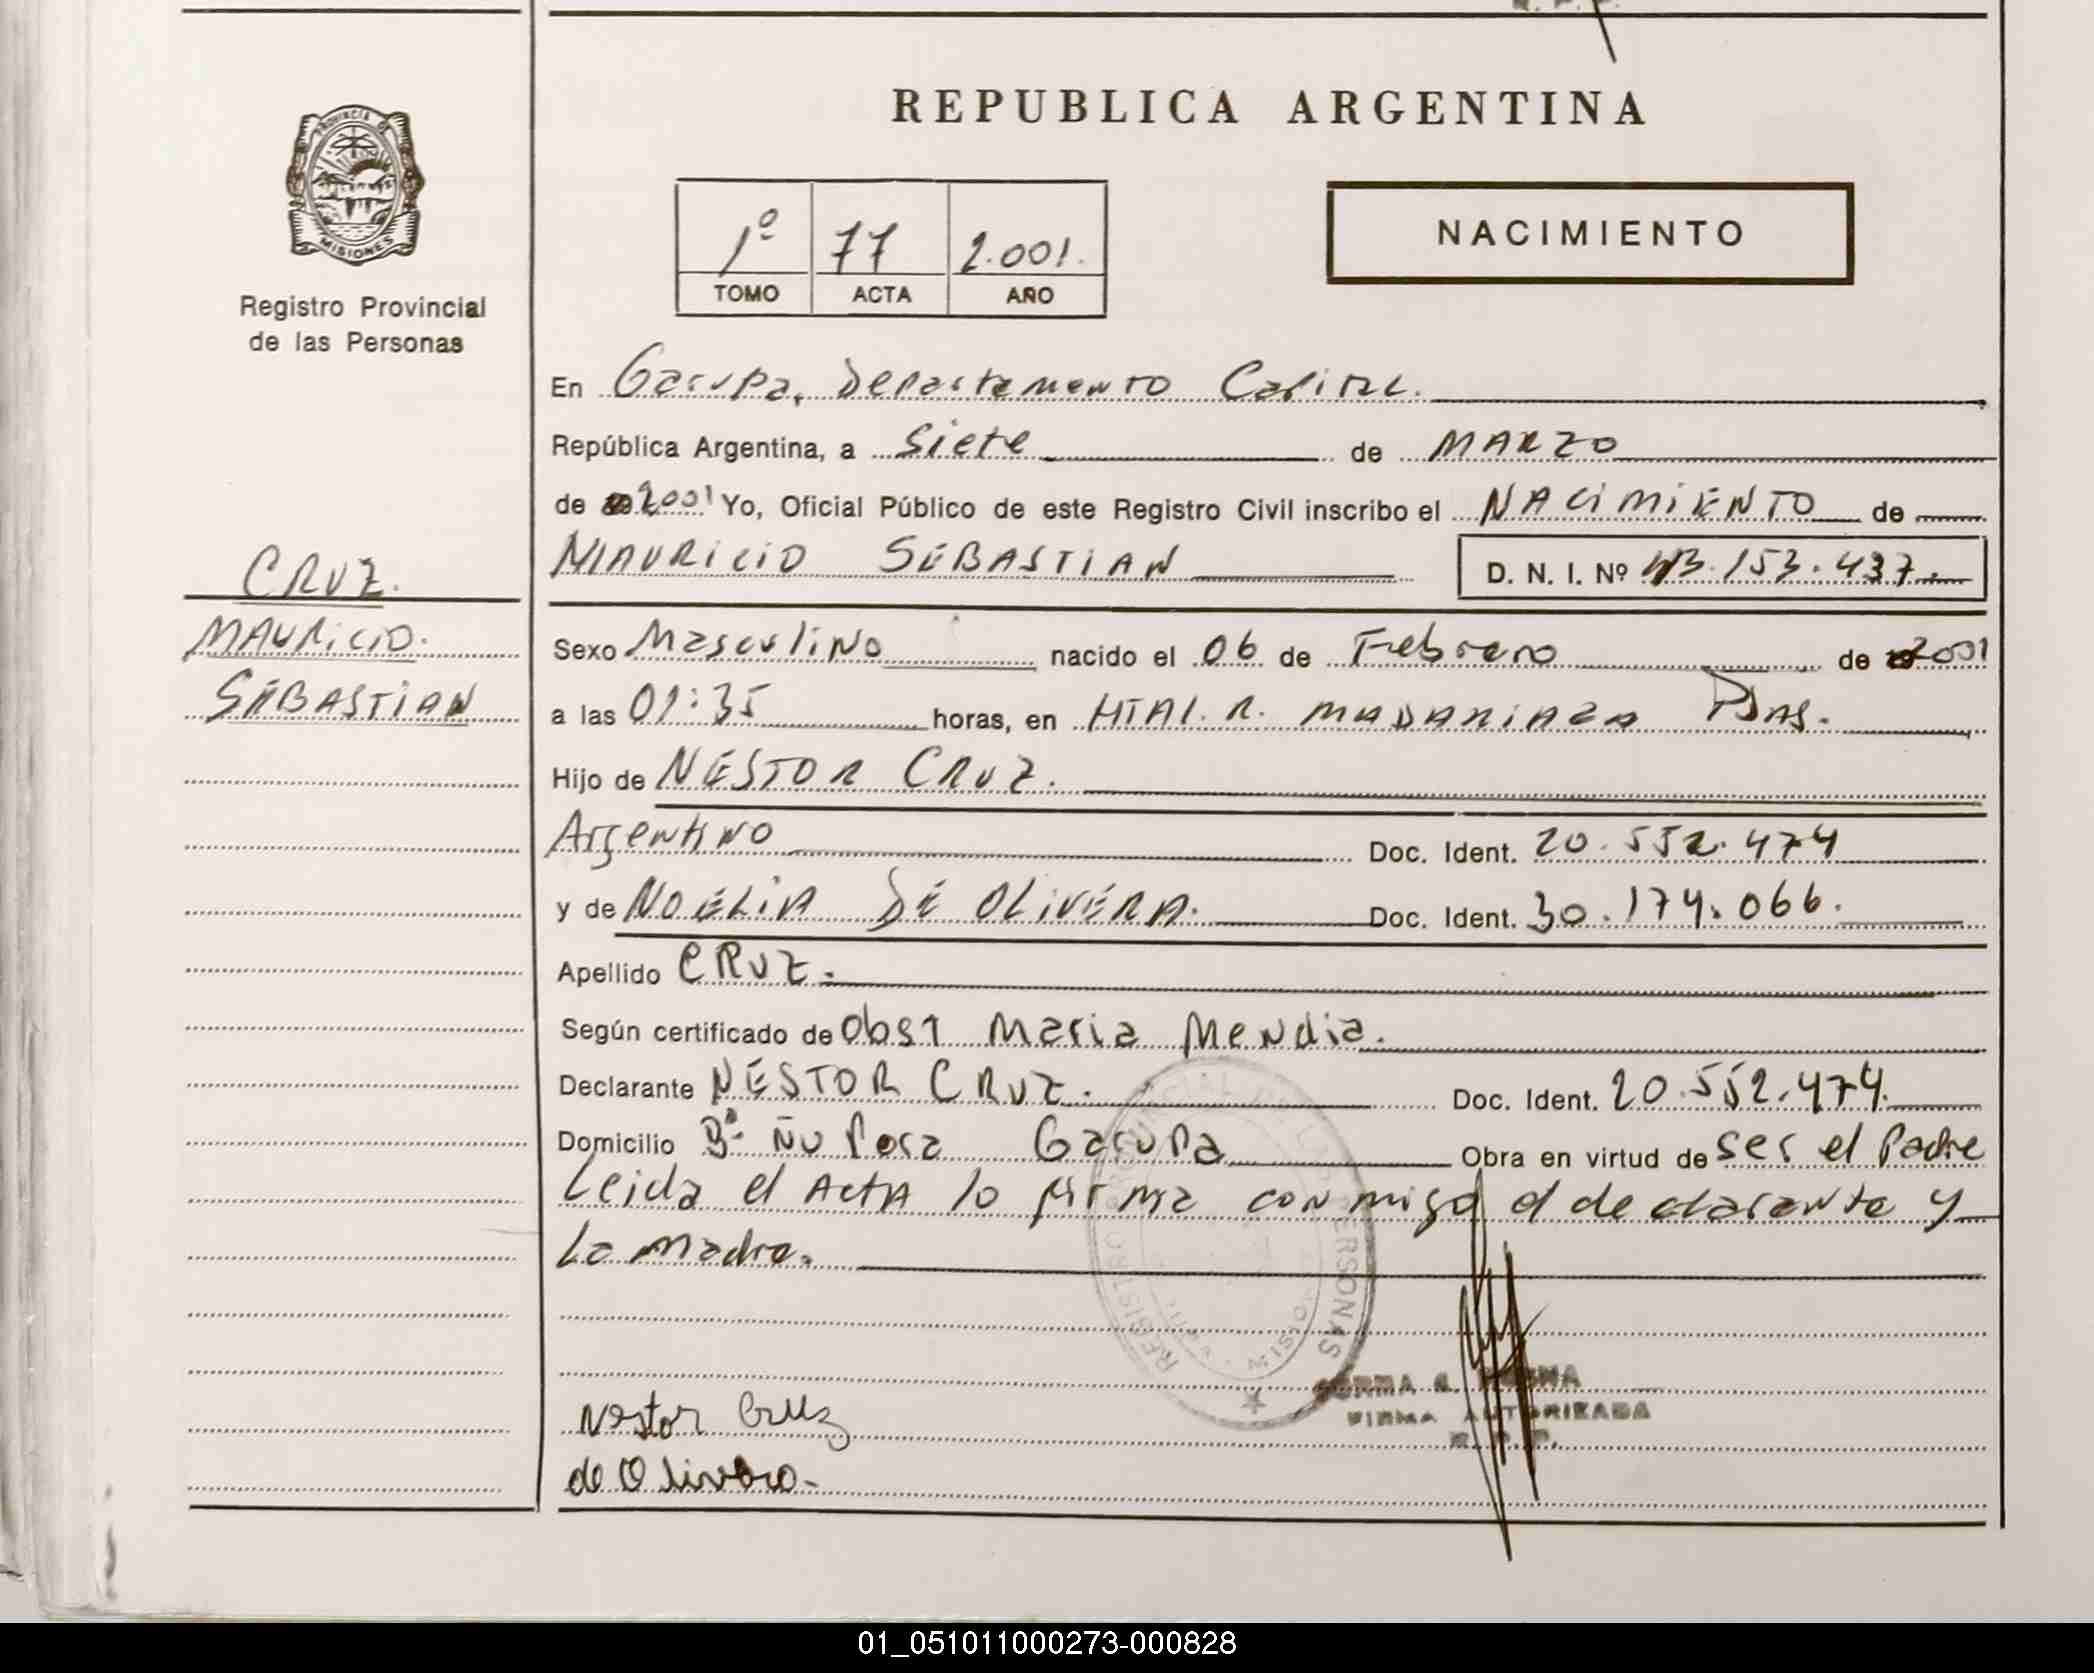 REPUBLICA ARGENTINA
PROVINCIA DE
MISIONES
Registro Provincial
de las Personas
1º 77 2.001.
TOMO ACTA AÑO
NACIMIENTO
En Garupa, Departamento Capital.
República Argentina, a Siete de MARZO
de 2001 Yo, Oficial Público de este Registro Civil inscribo el NACIMIENTO de
MAURICIO SEBASTIAN D. N. I. Nº 43.153.437.
CRUZ.
MAURICIO.
SEBASTIAN
Sexo Masculino nacido el 06 de Febrero de 2001
a las 01:35 horas, en HTAL. R. MADARIAGA Pdas.
Hijo de NESTOR CRUZ.
Argentino Doc. Ident. 20.552.474
y de NOELIA DE OLIVERA. Doc. Ident. 30.174.066.
Apellido CRUZ.
Según certificado de Obst Maria Mendia.
Declarante NESTOR CRUZ. Doc. Ident. 20.552.474.
Domicilio Bº Ñu Pora Garupa Obra en virtud de ser el Padre
Leida el Acta lo firma conmigo el declarante y
La Madre.
REGISTRO PROVINCIAL DE LAS PERSONAS
MISIONES
Nestor Cruz
de Olivera-
FIRMA AUTORIZADA
R. P. P.
01_051011000273-000828